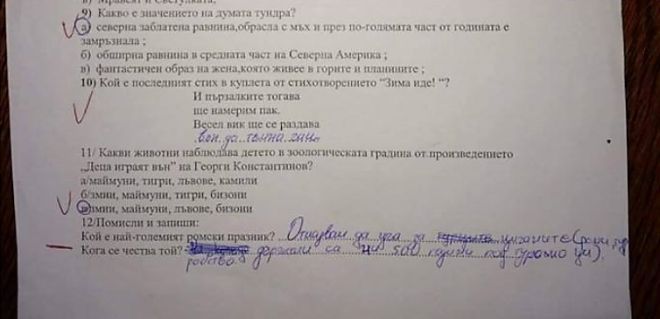 в) Мравея и Светулката;
9) Какво е значението на думата тундра?
а) северна заблатена равнина,обрасла с мъх и през по-голямата част от годината е
замръзнала ;
б) обширна равнина в средната част на Северна Америка ;
в) фантастичен образ на жена,която живее в горите и планините ;
10) Кой е последният стих в куплета от стихотворението "Зима иде! "?
И пързалките тогава
ще намерим пак.
Весел вик ще се раздава
11/ Какви животни наблюдава детето в зоологическата градина от произведението
„Деца играят вън" на Георги Константинов?
а/маймуни, тигри, лъвове, камили
б/змии, маймуни, тигри, бизони
в/змии, маймуни, лъвове, бизони
12/Помисли и запиши:
Кой е най-големият ромски празник? Отказвам да уча за циганите
Кога се чества той? държали са ни 500 години под турско
робство.